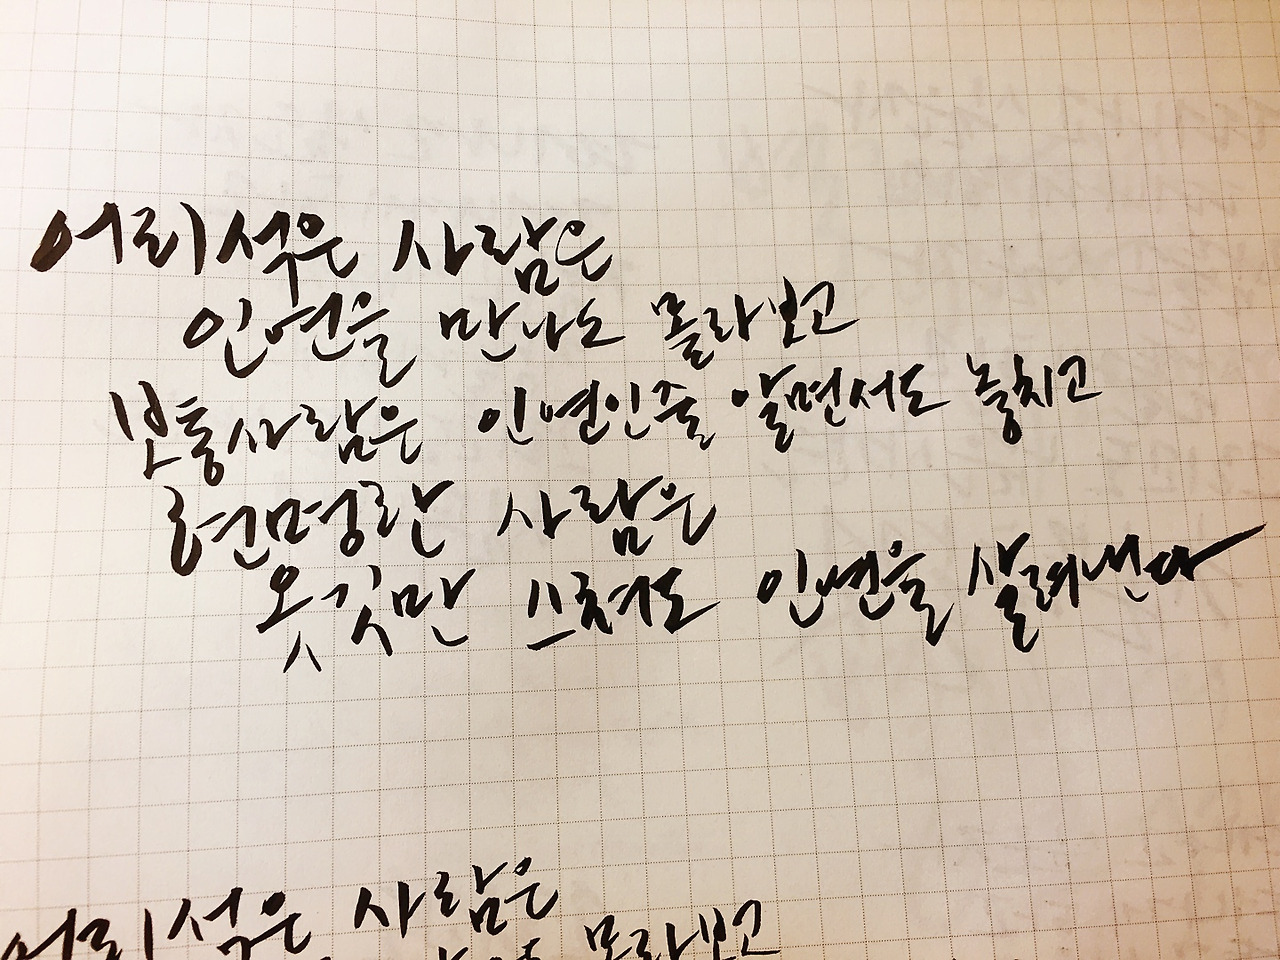 어리석은 사람은
인연을 만나도 몰라보고
보통사람은 인연인줄 알면서도 놓치고
현명한 사람은
옷깃만 스쳐도 인연을 살려낸다
어리석은 사람은
몰라보고